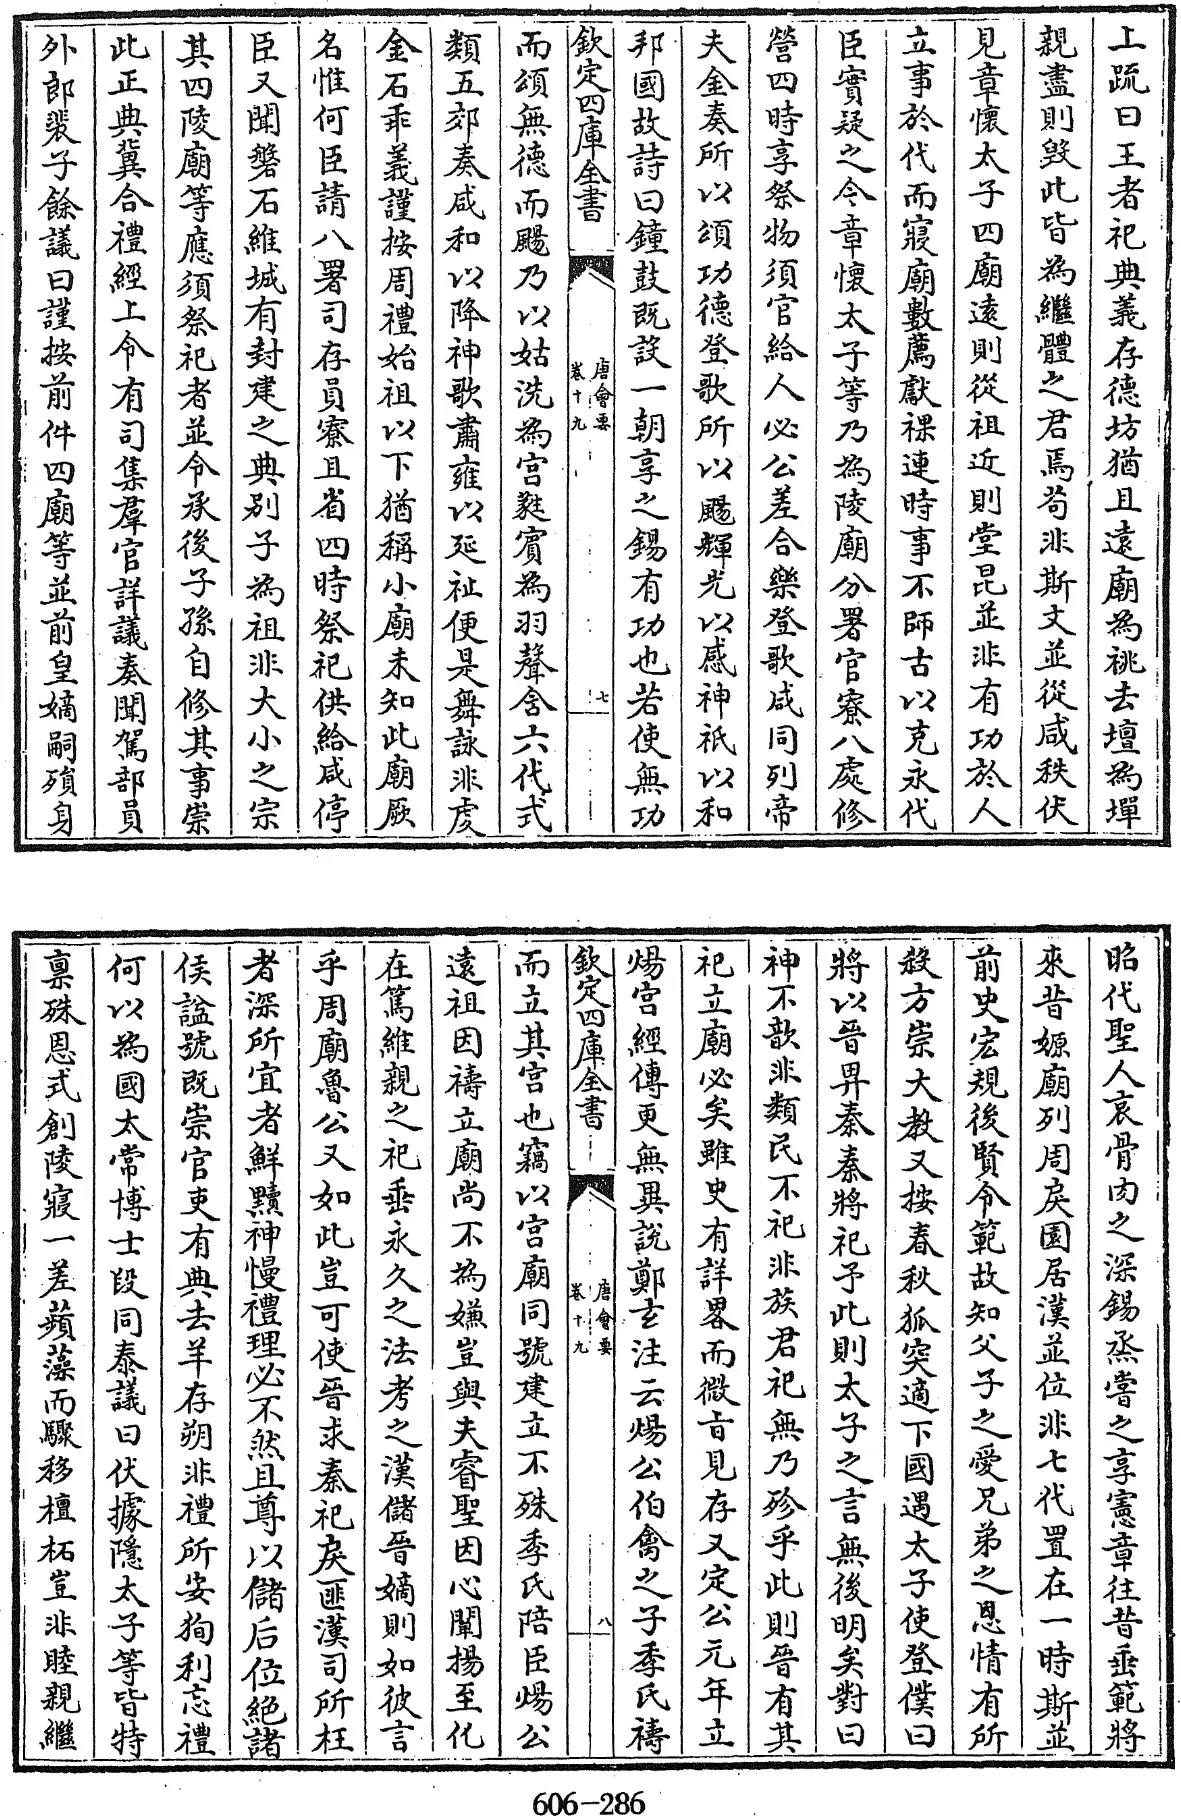 上疏曰王者祀典義存德坊猶且遠廟為祧去壇為墠
親盡則毁此皆為繼體之君焉茍非斯文並從咸秩伏
見章懷太子四廟遠則從祖近則堂昆並非有功於人
立事於代而寢廟數薦獻祼連時事不師古以克永代
臣實疑之今章懷太子等乃為陵廟分署官寮八處修
營四時享祭物須官給人必公差合樂登歌咸同列帝
夫金奏所以頌功德登歌所以颺輝光以感神祇以和
邦國故詩曰鐘鼓既設一朝享之錫有功也若使無功
欽定四庫全書
唐會要
卷十九
七
而頌無德而颺乃以姑洗為宮蕤賓為羽聲含六代式
類五郊奏咸和以降神歌肅雍以延祉便是舞詠非虔
金石乖義謹按周禮始祖以下猶稱小廟未知此廟厥
名惟何臣請八署司存員寮且省四時祭祀供給咸停
臣又聞磐石維城有封建之典別子為祖非大小之宗
其四陵廟等應須祭祀者並令承後子孫自修其事崇
此正典冀合禮經上令有司集羣官詳議奏聞駕部員
外郎裴子餘議曰謹按前件四廟等並前皇嫡嗣殞身
昭代聖人哀骨肉之深錫烝嘗之享憲章往昔垂範將
來昔嫄廟列周戾園居漢並位非七代置在一時斯並
前史宏規後賢令範故知父子之愛兄弟之恩情有所
殺方崇大教又按春秋狐突適下國遇太子使登僕曰
將以晉畀秦秦將祀予此則太子之言無後明矣對曰
神不歆非類民不祀非族君祀無乃殄乎此則晉有其
祀立廟必矣雖史有詳畧而微旨見存又定公元年立
煬宮經傳更無異說鄭玄注云煬公伯禽之子季氏禱
欽定四庫全書
唐會要
卷十九
八
而立其宮也竊以宮廟同號建立不殊季氏陪臣煬公
遠祖因禱立廟尚不為嫌豈與夫睿聖因心闡揚至化
在篤維親之祀垂永久之法考之漢儲晉嫡則如彼言
乎周廟魯公又如此豈可使晉求秦祀戾匪漢司所枉
者深所宜者鮮黷神慢禮理必不然且尊以儲后位絕諸
侯諡號既崇官吏有典去羊存朔非禮所安狥利忘禮
何以為國太常博士段同泰議曰伏據隱太子等皆特
稟殊恩式創陵寢一差蘋藻而驟移檀柘豈非睦親繼
606-286